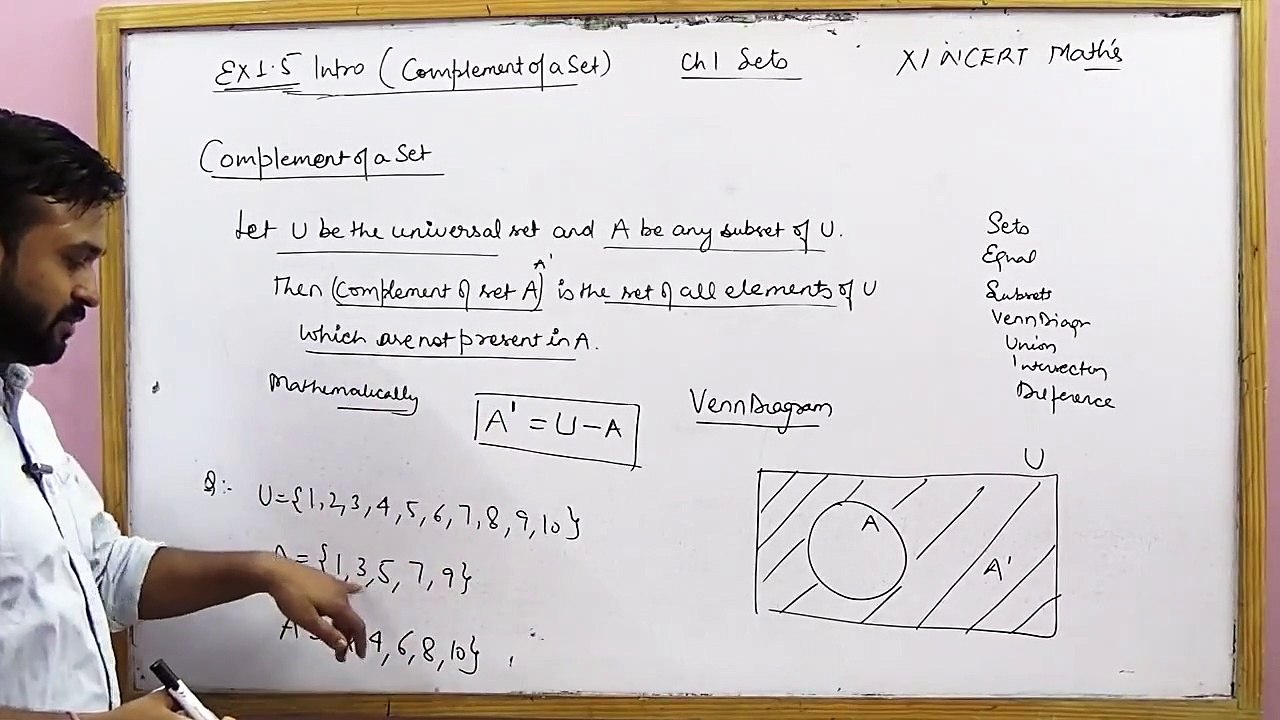 Ex 1.5 Intro (Complement of a Set)
Ch 1 Sets
XI NCERT Maths
Complement of a Set
Let U be the universal set and A be any subset of U.
A'
then (Complement of set A) is the set of all elements of U
which are not present in A.
Mathematically
A' = U - A
Venn Diagram
Sets
Equal
Subsets
Venn Diagr
Union
Intersection
Difference
Q:- U={1,2,3,4,5,6,7,8,9,10}
={1,3,5,7,9}
A 4,6,8,10}
U
A
A'